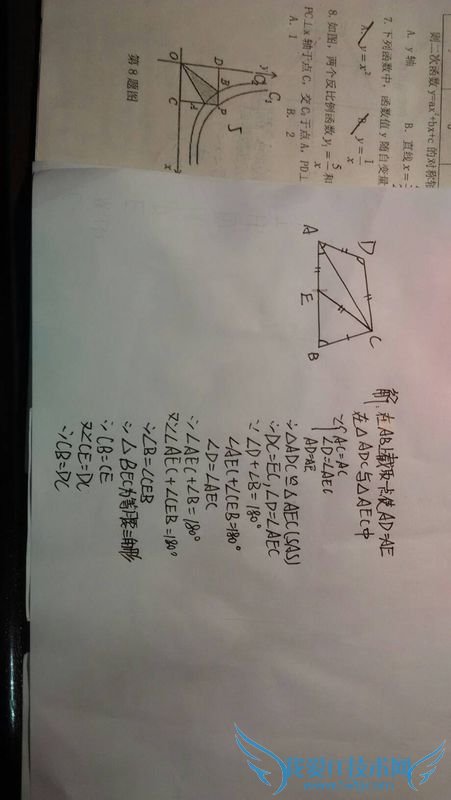 则二次函数y=ax²+bx+c的对称轴
A. y轴 B. 直线x=
7. 下列函数中，函数值y随自变量
A. y=x² B. y=1/x
8. 如图，两个反比例函数y₁=5/x和
PC⊥x轴于点C，交C₂于点A，PD⊥
A. 1 B. 2
y
C₁
D
B
P
5
A
O
C
x
第8题图
D
C
A
E
B
解:在AB上截取点使AD=AE
在△ADC与△AEC中
∵{AC=AC
∠D=∠AEC
AD=AE
∴△ADC≌△AEC(SAS)
∴DC=EC,∠D=∠AEC
∵∠D+∠B=180°
∠AEC+∠CEB=180°
∠D=∠AEC
∴∠AEC+∠B=180°
又∵∠AEC+∠CEB=180°
∴∠B=∠CEB
∴△BEC为等腰三角形
∴CB=CE
又∵CE=DC
∴CB=DC